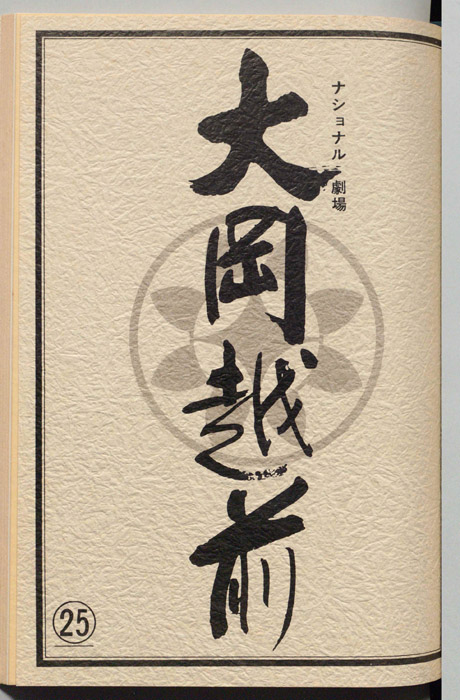 ナショナル劇場
大岡越前
㉕